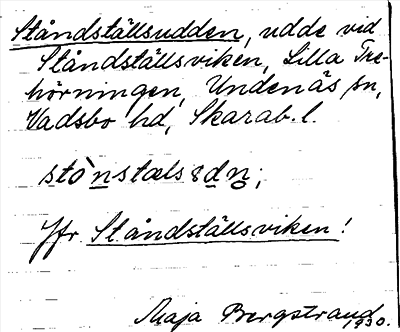 Ståndställsudden, udde vid
Ståndställsviken, Lilla Tre-
hörningen, Undenäs sn,
Vadsbo hd, Skarab. l.
stò̀nstælsɛdn̥;
Jfr Ståndställsviken!
Maja Bergstrand
1930.